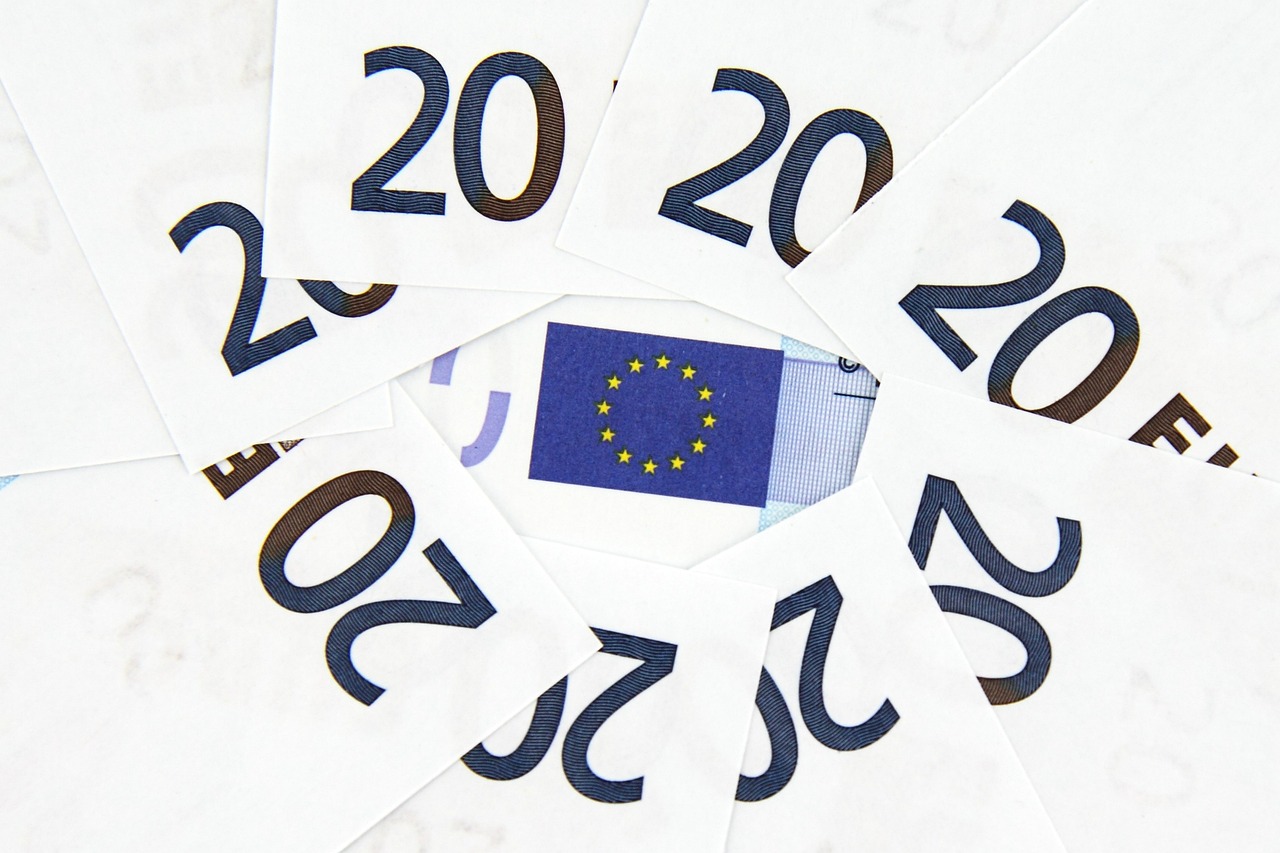 20
20
20
20
©
EU
20
E
20
20
20